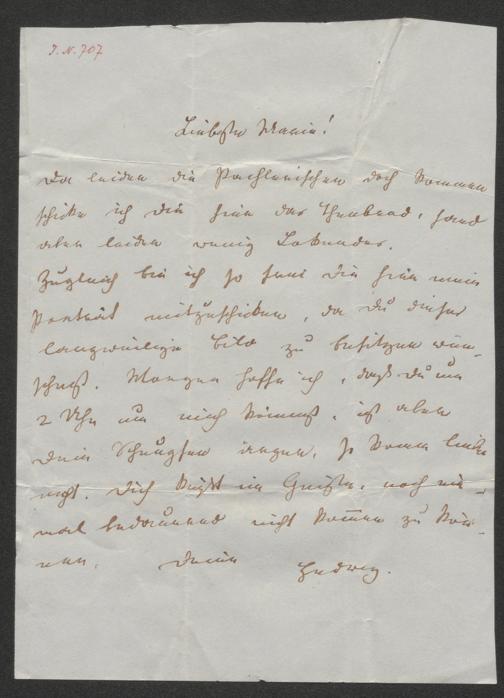 J. N. 707
Liebste Marie!
Da leider die Pachlerischen doch kommen
schicke ich dir hier das        , fand
aber leider wenig        .
Zugleich bin ich so frei dir hier mein
Porträt mitzuschicken, da du dieses
langweilige Bild zu besitzen wün-
schest. Morgen hoffe ich, daß du um
2 Uhr zu mich kommst, ist aber
dein        ärger, so komm lieber
nicht. Dich küßt im Geiste, noch ein-
mal bedauernd nicht kommen zu kön-
nen, deine Hedwig.